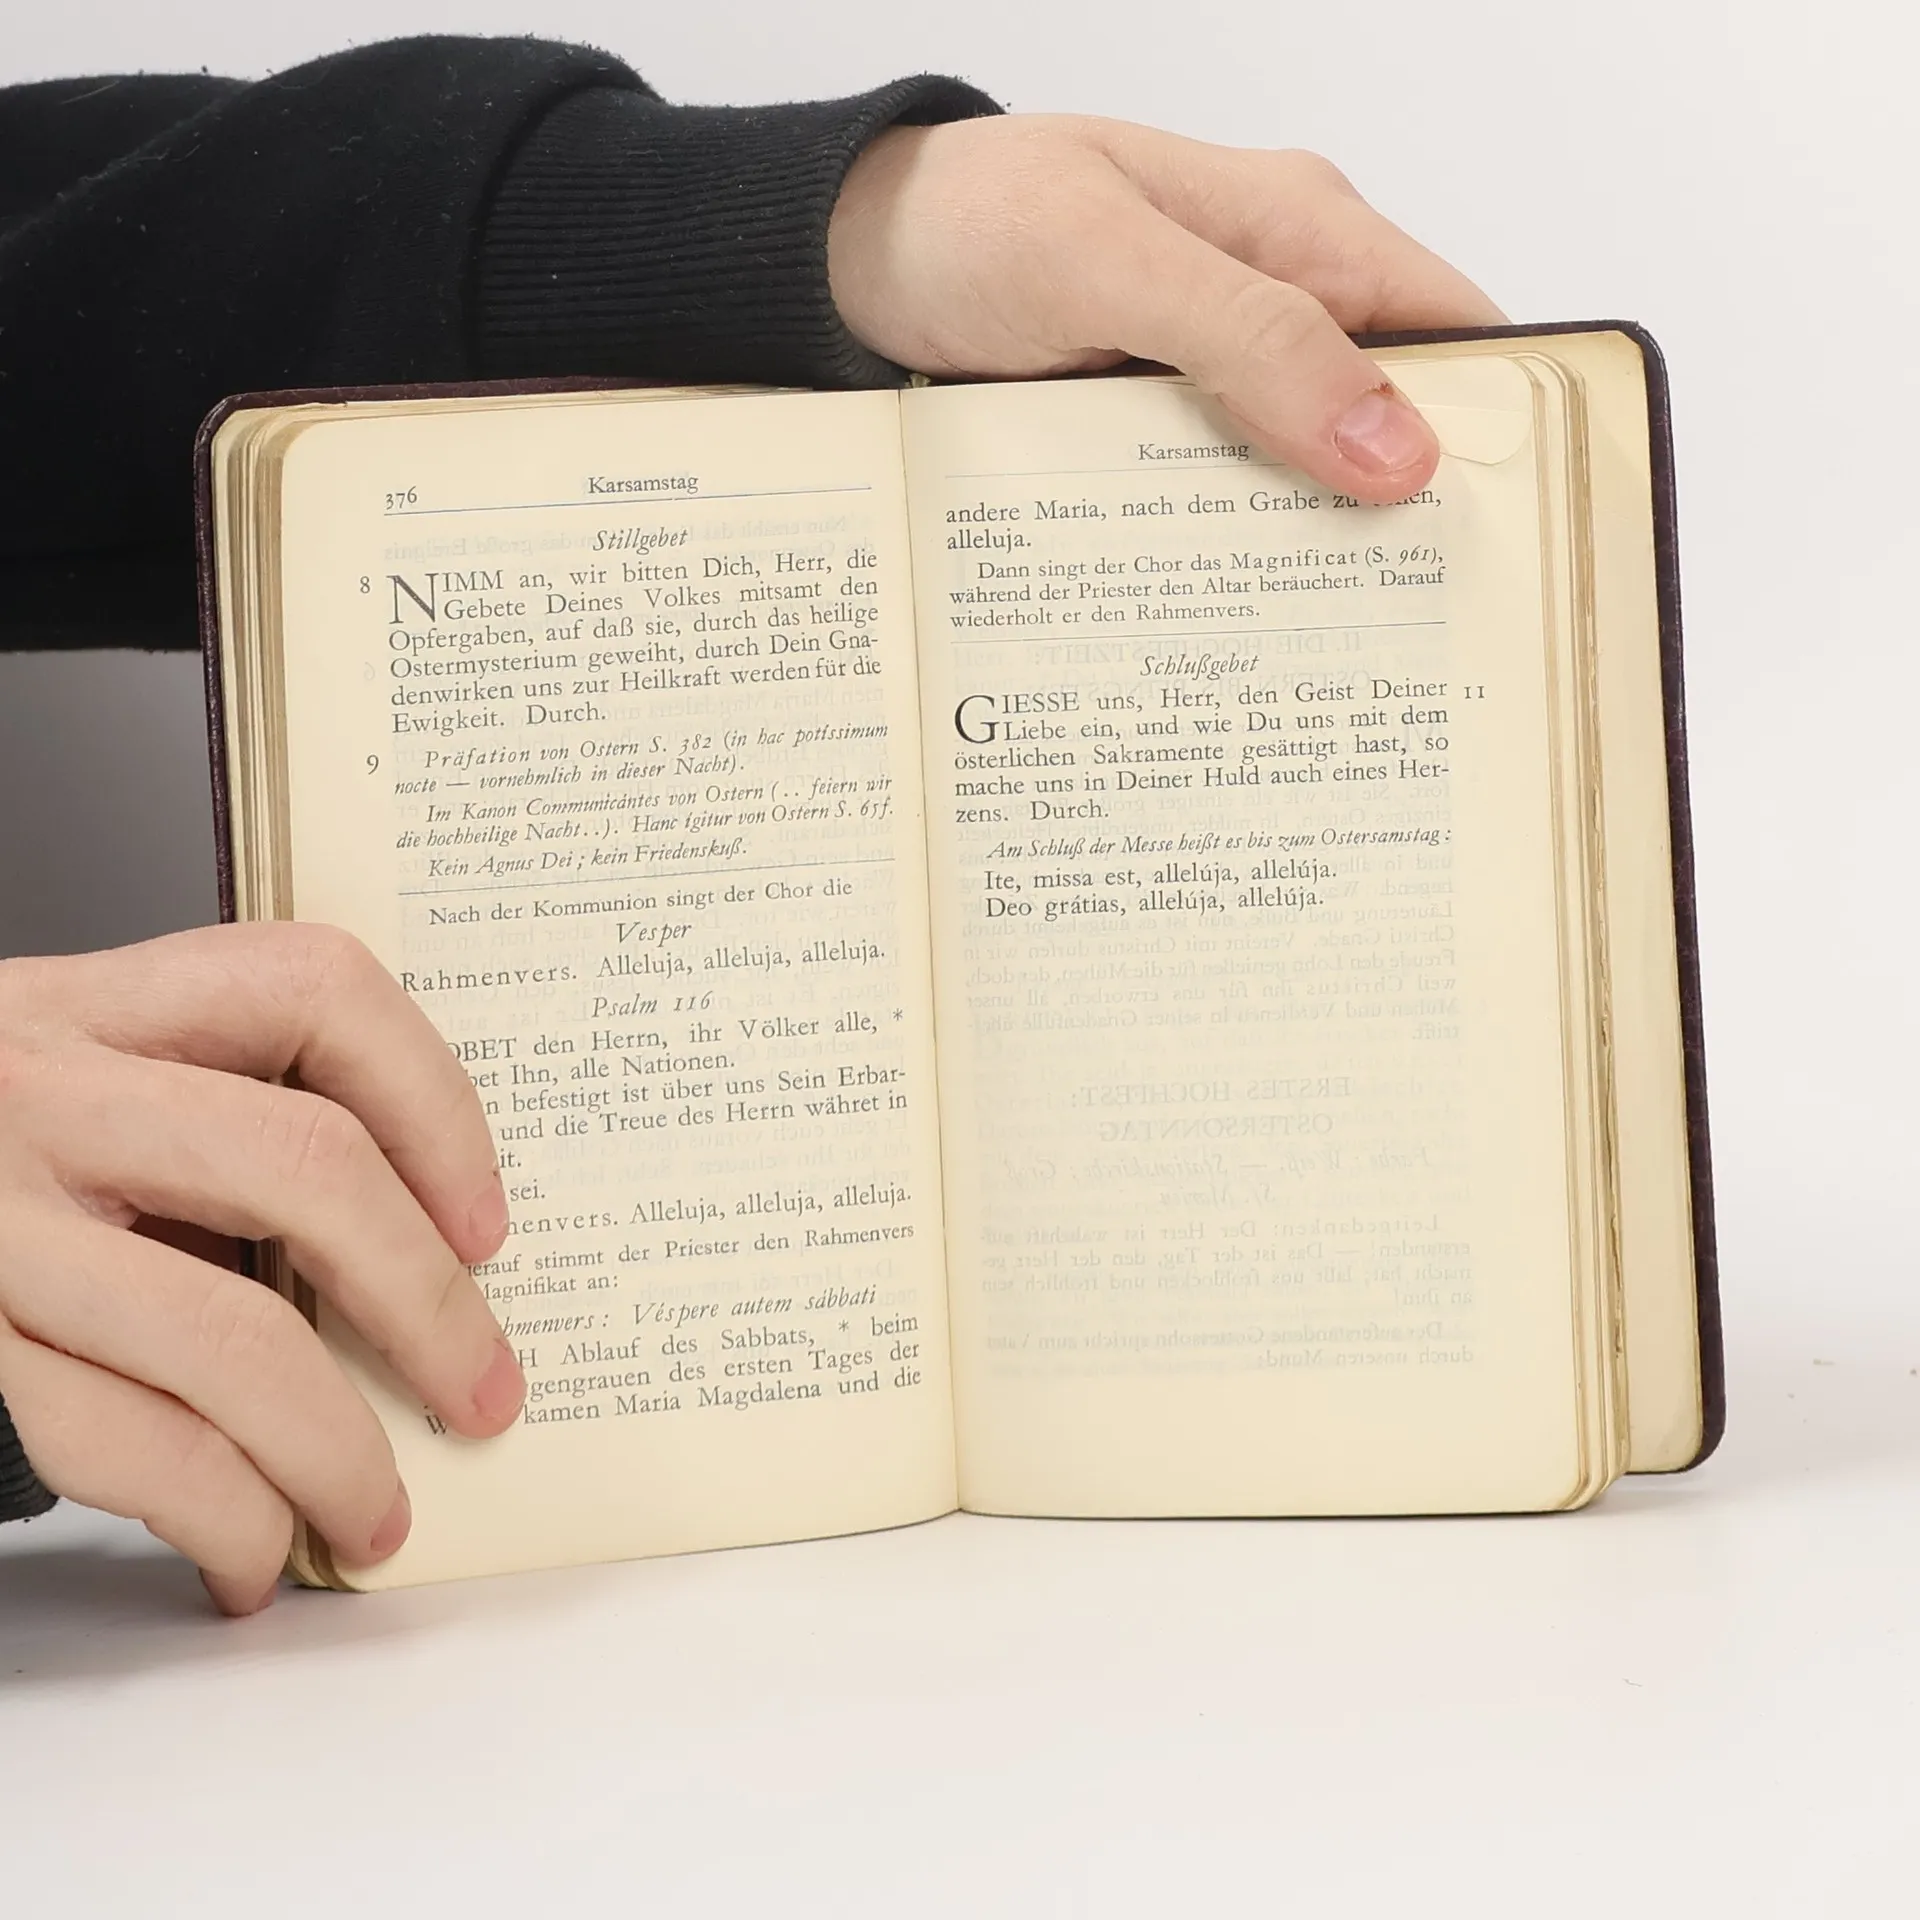 376
Karsamstag
Stillgebet
8 NIMM an, wir bitten Dich, Herr, die
Gebete Deines Volkes mitsamt den
Opfergaben, auf daß sie, durch das heilige
Ostermysterium geweiht, durch Dein Gna-
denwirken uns zur Heilkraft werden für die
Ewigkeit. Durch.
9 Präfation von Ostern S. 382 (in hac potíssimum
nocte — vornehmlich in dieser Nacht).
Im Kanon Communicántes von Ostern (.. feiern wir
die hochheilige Nacht..). Hanc ígitur von Ostern S. 65f.
Kein Agnus Dei; kein Friedenskuß.
Nach der Kommunion singt der Chor die
Vesper
Rahmenvers. Alleluja, alleluja, alleluja.
Psalm 116
OBET den Herrn, ihr Völker alle, *
bet Ihn, alle Nationen.
n befestigt ist über uns Sein Erbar-
und die Treue des Herrn währet in
it.
sei.
menvers. Alleluja, alleluja, alleluja.
erauf stimmt der Priester den Rahmenvers
Magnifikat an:
hmenvers: Véspere autem sábbati
H Ablauf des Sabbats, * beim
gengrauen des ersten Tages der
W kamen Maria Magdalena und die
Karsamstag
andere Maria, nach dem Grabe zu
alleluja.
Dann singt der Chor das Magnificat (S. 961),
während der Priester den Altar beräuchert. Darauf
wiederholt er den Rahmenvers.
Schlußgebet
GIESSE uns, Herr, den Geist Deiner 11
Liebe ein, und wie Du uns mit dem
österlichen Sakramente gesättigt hast, so
mache uns in Deiner Huld auch eines Her-
zens. Durch.
Am Schluß der Messe heißt es bis zum Ostersamstag:
Ite, missa est, allelúja, allelúja.
Deo grátias, allelúja, allelúja.